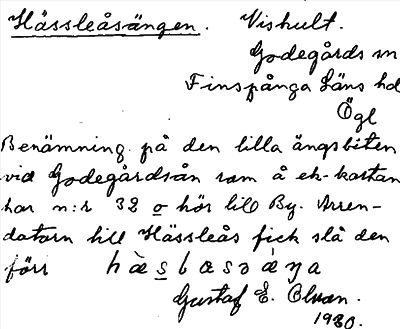 Hässleåsängen. Viskult.
Godegårds sn
Finspånga Läns hd
Ögl
Benämning på den lilla ängsbiten
vid Godegårdsån som å ek-kartan
har n:r 32 o hör till By. Arren-
datorn till Hässleås fick slå den
förr
Gustaf E. Olsson.
1930.